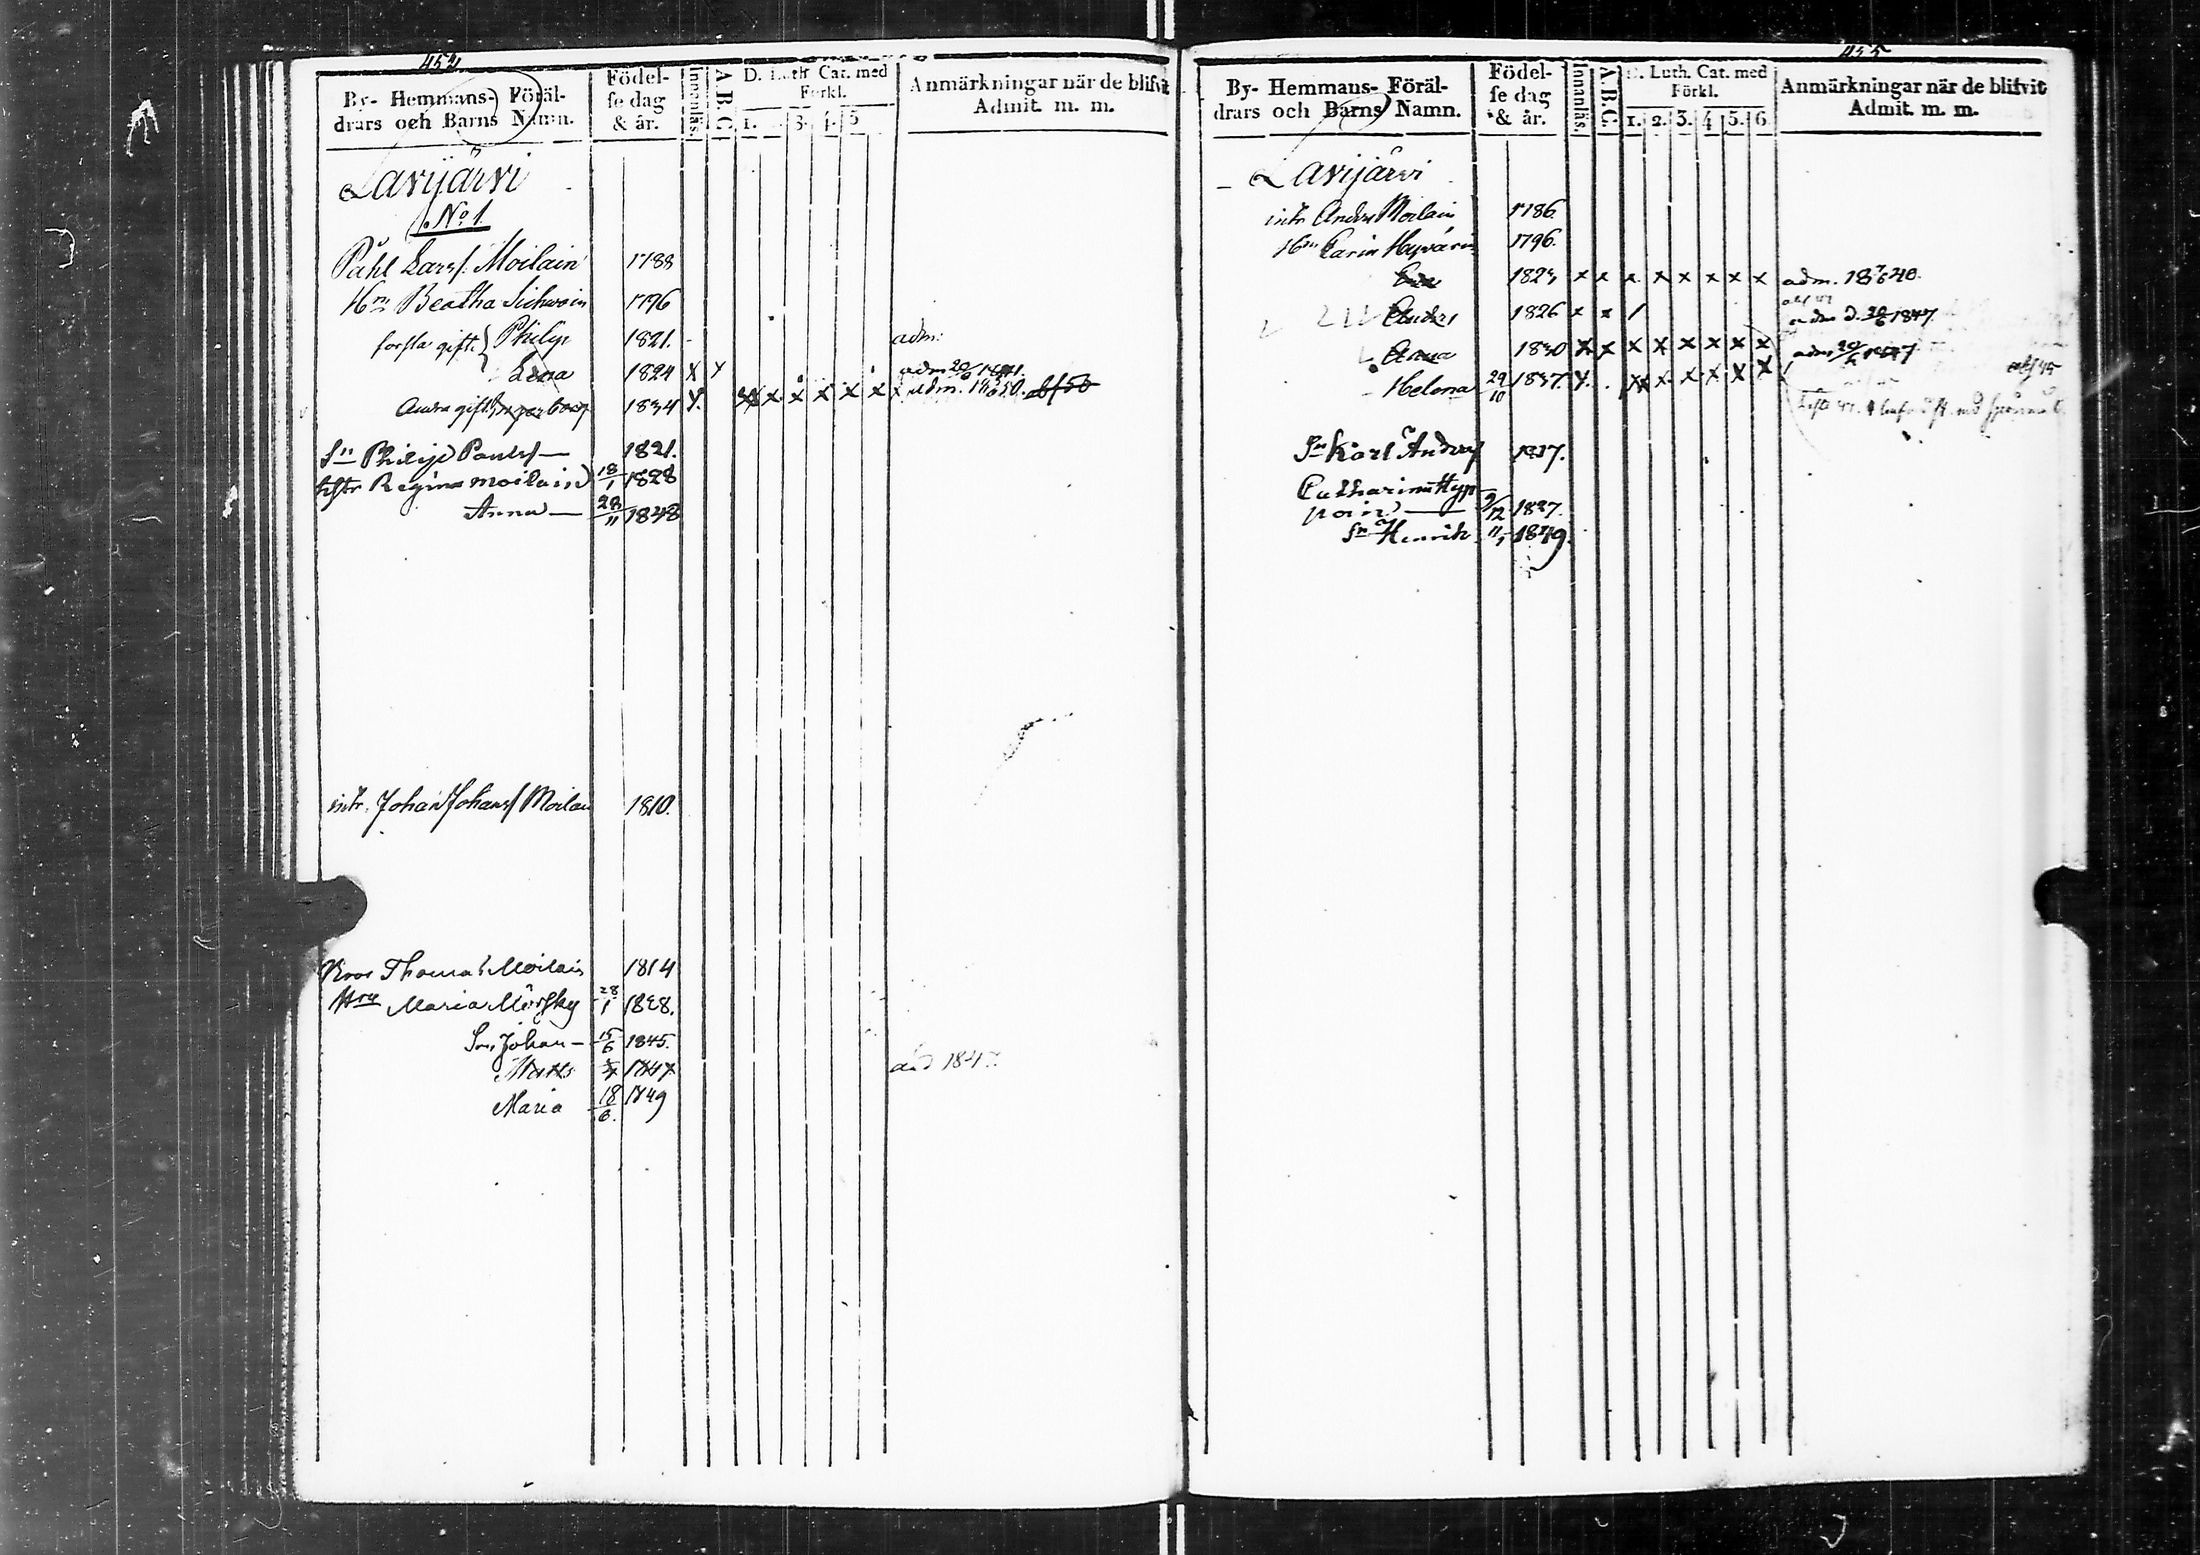 454
By- Hemmans- Föräl-
drars och Barns Namn.
Födel-
se dag
& år.
Innanläs.
A.B.C.
D. Luth. Cat. med
Förkl.
1. 3. 4. 5
Anmärkningar när de blifvit
Admit. m. m.
Lavijärvi
No 1.
Påhl Larss. Moilain 1788
Hru Beatha Sichvoin 1796
första gift. Philip 1821. adm:
Lena 1824 x x adm 20/6 1841.
Andra gift. Ingeborg 1834 x. x x x x x x adm. 18 50. abf 50
Sn Philip Paulss — 1821.
hstr Regina Moilain 18/1 1828
Anna — 28/11 1848
intr. Johan Johanss Moilain 1810.
Thomas Moilain 1814
Hru Maria Mörsky 28/1 1828.
Sn. Johan — 15/6 1845.
Matts 1847 död 1847.
Maria 18/6. 1849
455
By- Hemmans- Föräl-
drars och Barns Namn.
Födel-
se dag
& år.
Innanläs.
A.B.C.
D. Luth. Cat. med
Förkl.
1. 2. 3. 4 5. 6
Anmärkningar när de blifvit
Admit. m. m.
Lavijärvi
intr Anders Moilain 1786.
Hru Carin Hyvärin 1796.
Eva 1823 x x x x x x x x adm. 18 40.
Anders 1826 x x 1 adm d. 20/6 1847.
Anna 1830 x x x x x x x x adm 20/6 1847
Helena 29/10 1837. x. x x x x x x abf 45
Sn Karl Anderss 1837.
Catharina Hyp-
poin — 9/12 1827.
Sn Henrik 11/1 1849.